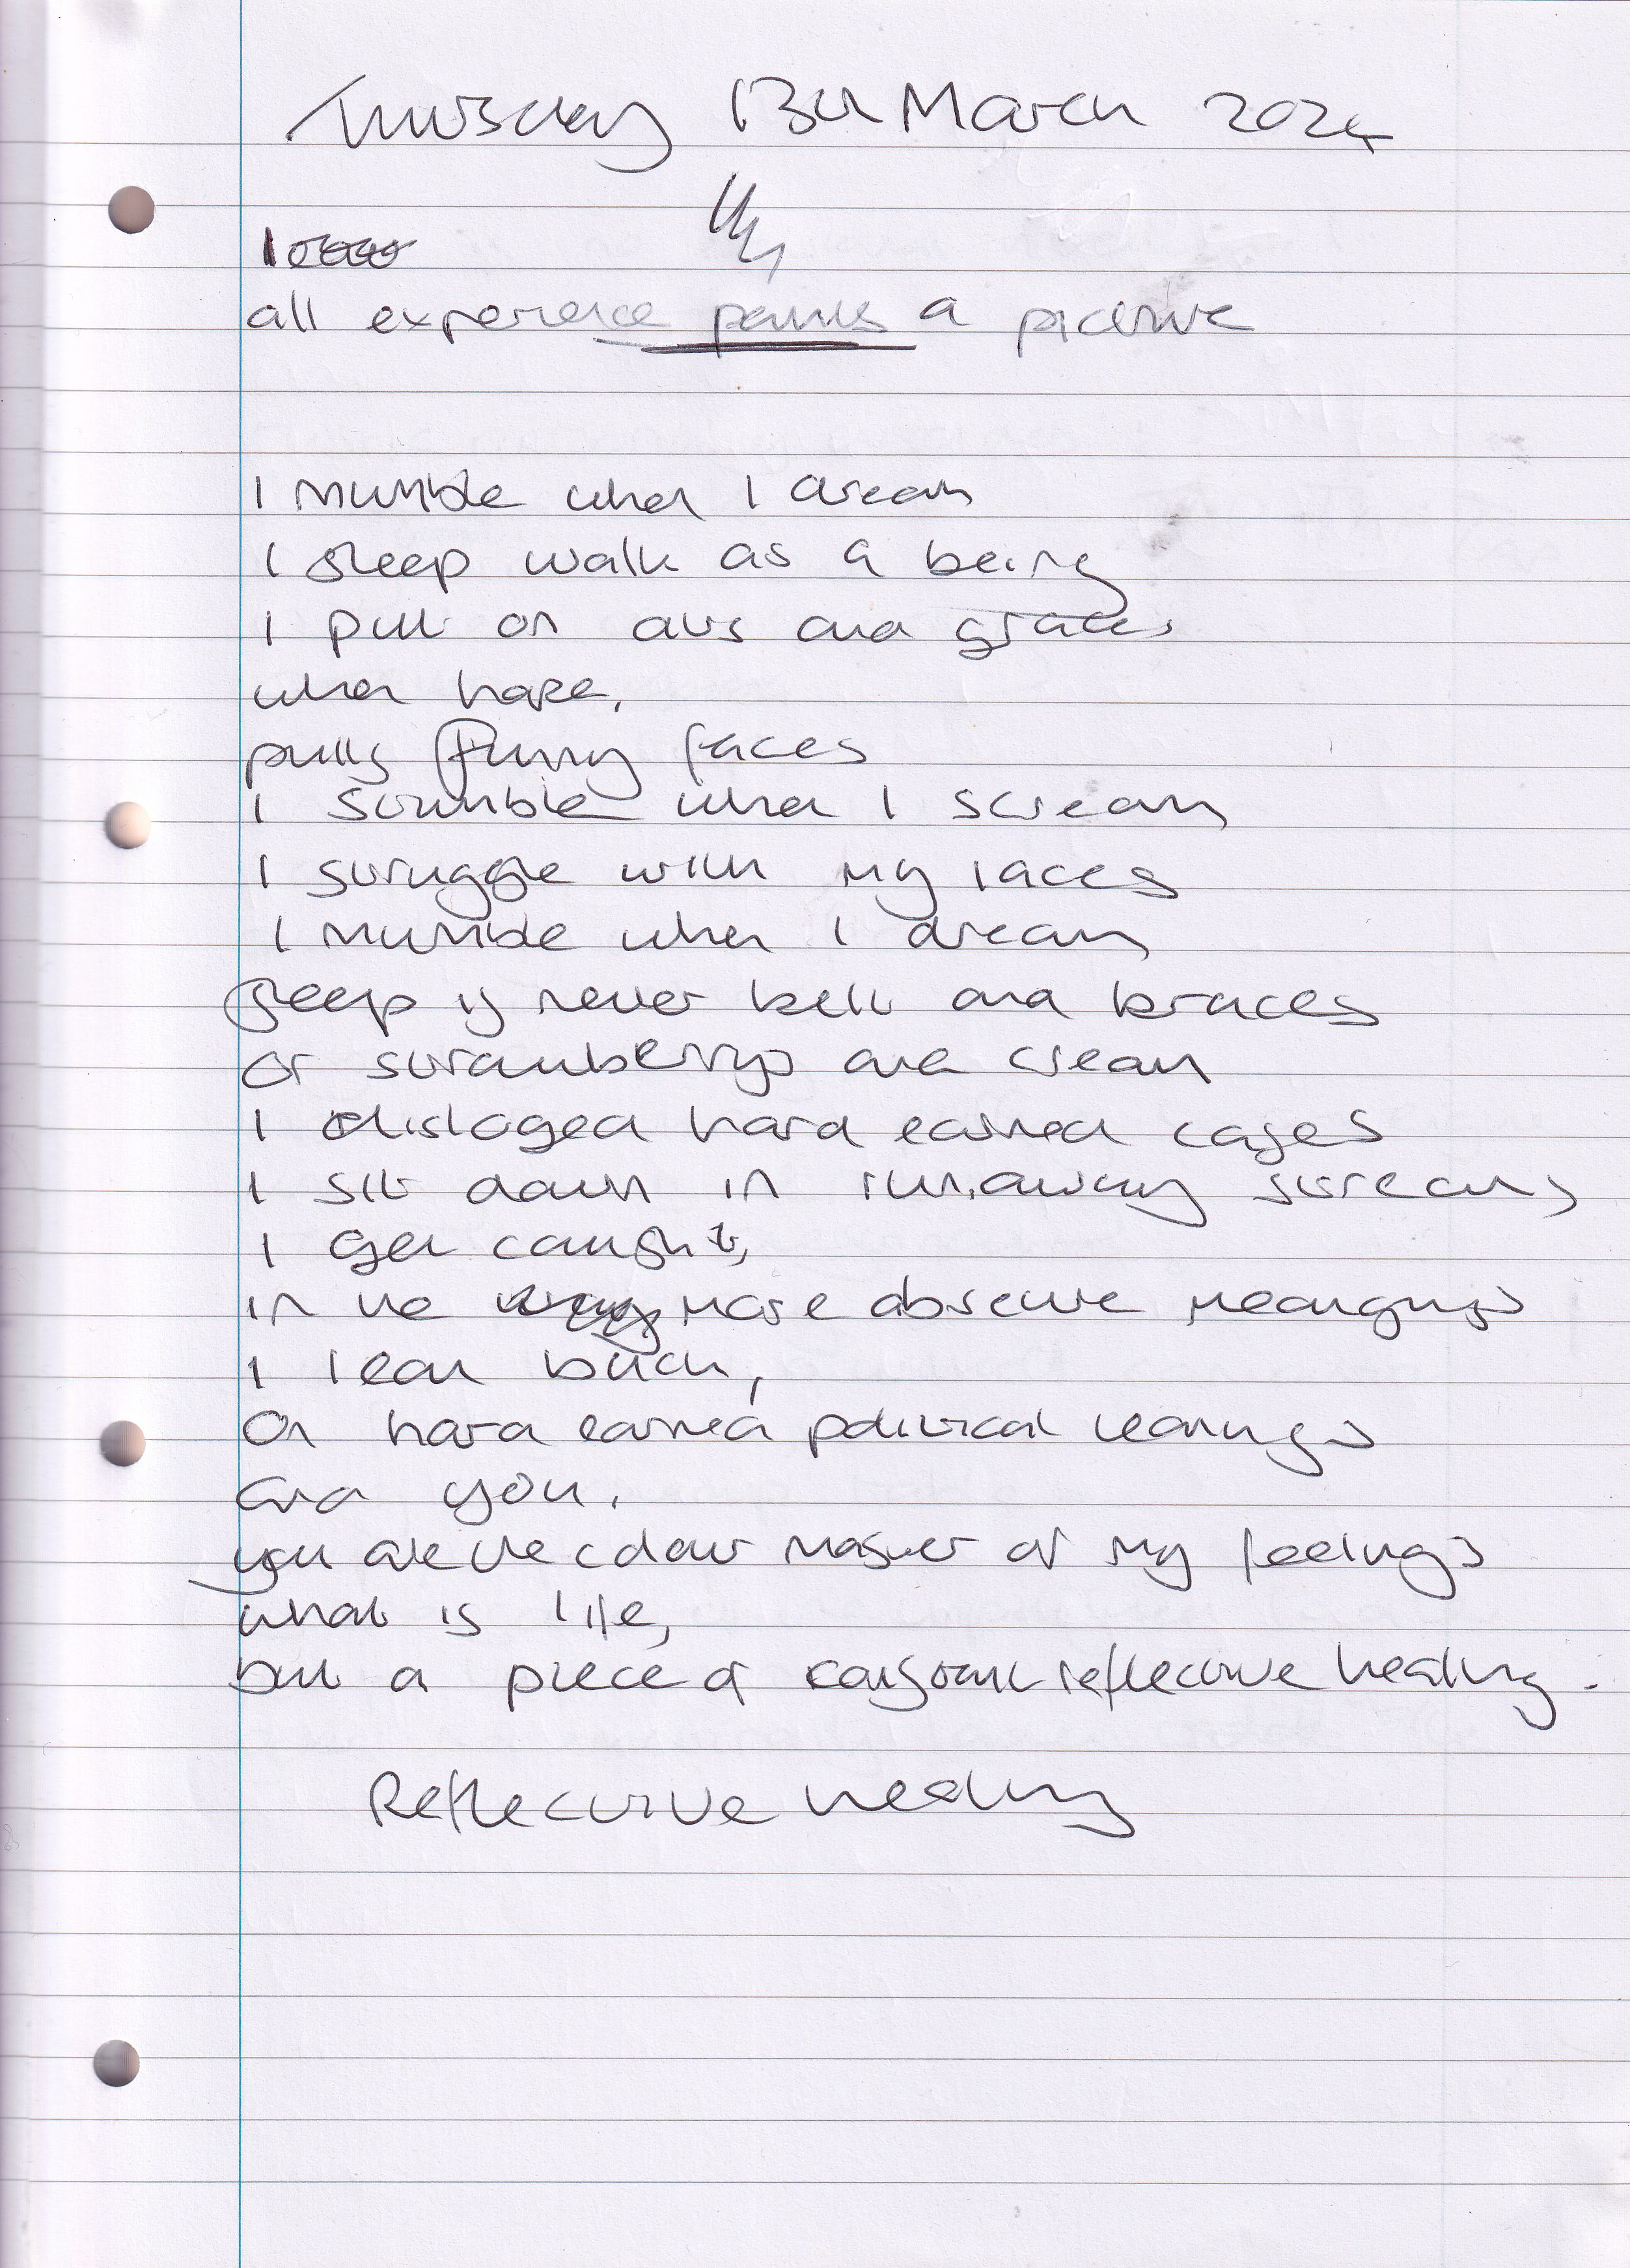 Thursday 13th March 2024
all experience paints a picture
I mumble when I dream
I sleep walk as a being
I put on airs and graces
when hope,
pulls funny faces
I stumble when I scream
I struggle with my laces
I mumble when I dream
Sleep is never belt and braces
or strawberrys and cream
I disloged hard earned cages
I sit down in runaway streams
I get caught,
in the more obscure meanings
I lean back,
On hard earned political leanings
and you.
you are the colour master of my feelings
what is life,
but a piece of reflective healing.
Reflective healing